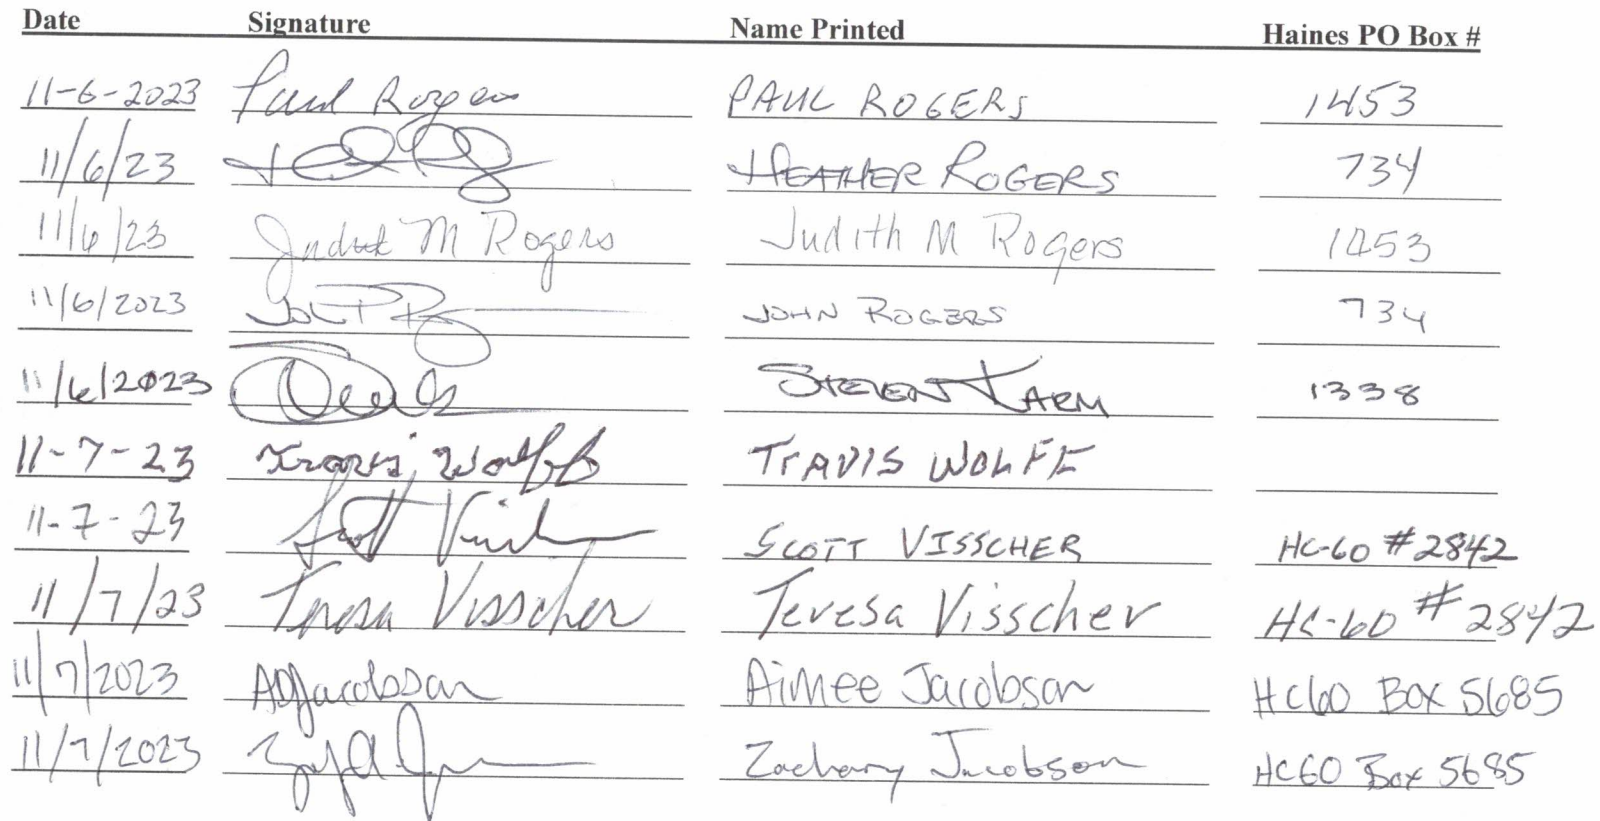 Date Signature Name Printed Haines PO Box #
11-6-2023 Paul Rogers PAUL ROGERS 1453
11/6/23 HEATHER ROGERS 734
11/6/23 Judith M Rogers Judith M Rogers 1453
11/6/2023 JOHN ROGERS 734
11/6/2023 STEVEN 1338
11-7-23 Travis Wolfe TRAVIS WOLFE
11-7-23 Scott Visscher SCOTT VISSCHER HC-60 #2842
11/7/23 Teresa Visscher Teresa Visscher HC-60 #2842
11/7/2023 AJJacobson Aimee Jacobson HC60 Box 5685
11/7/2023 Zachary Jacobson HC60 Box 5685